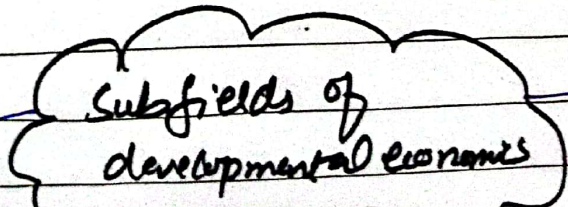 Subfields of
developmental economics